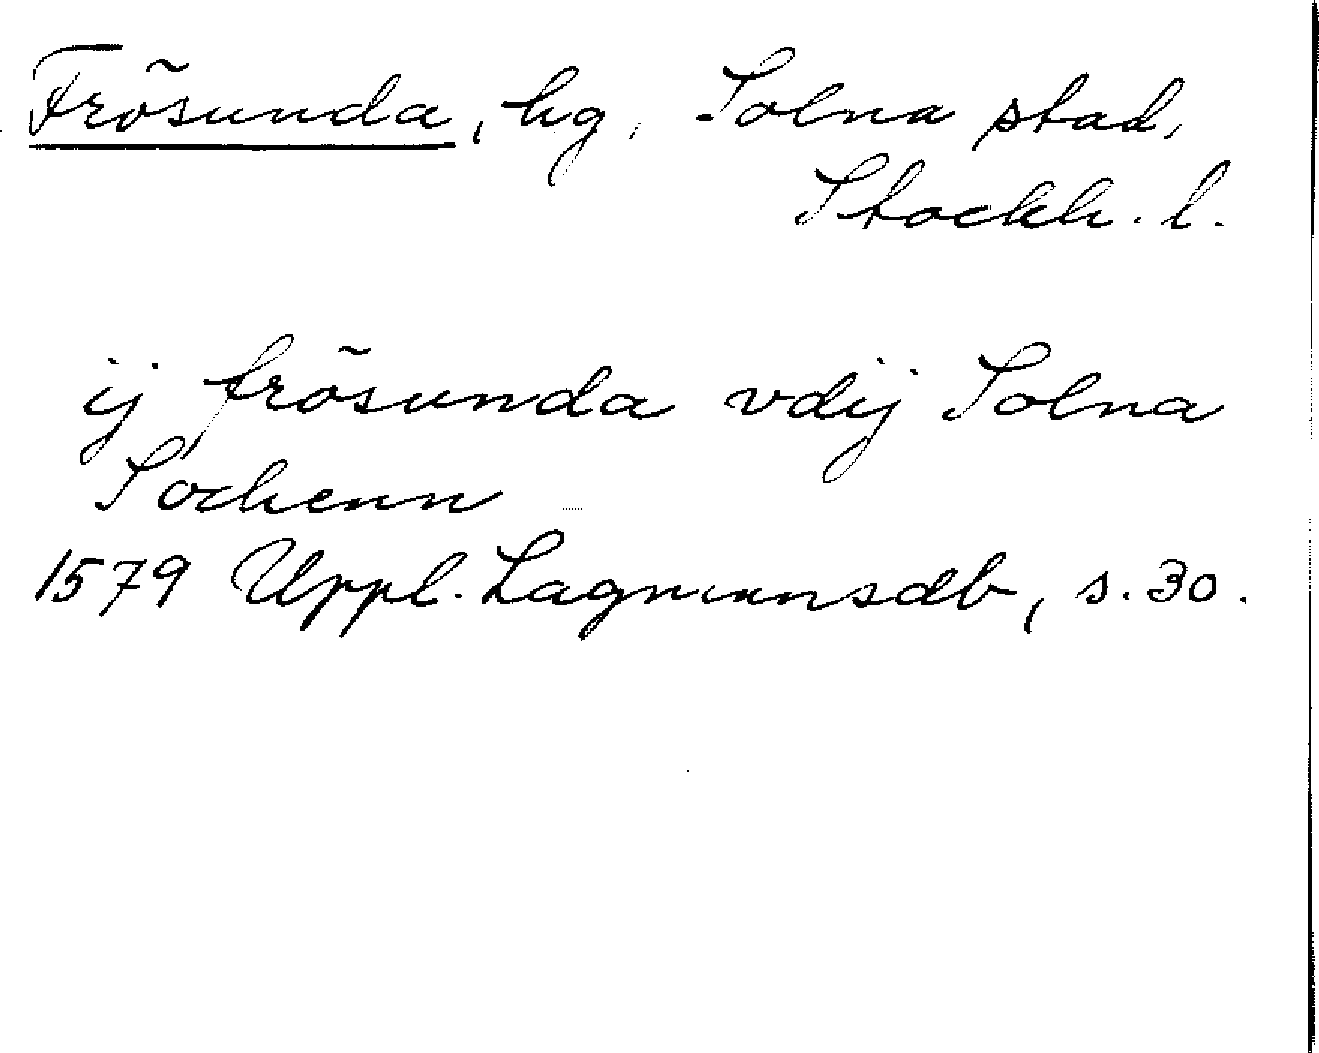 Frösunda, hg, Solna stad,
Stockh. l.
ij frösunda vdij Solna
Sochenn
1579 Uppl. Lagmansdb, s. 30.